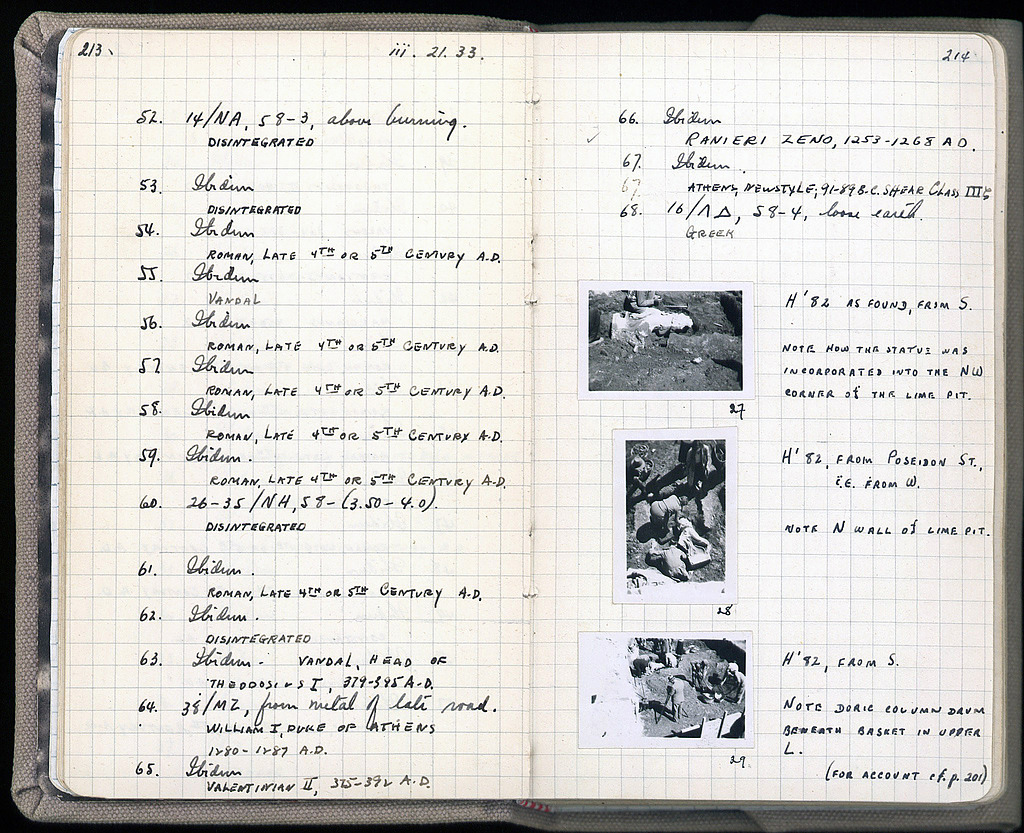 213.
iii. 21. 33.
52. 14/NA, 58-3, above burning.
DISINTEGRATED
53. Ibidem
DISINTEGRATED
54. Ibidem
ROMAN, LATE 4TH OR 5TH CENTURY A.D.
55. Ibidem
VANDAL
56. Ibidem
ROMAN, LATE 4TH OR 5TH CENTURY A.D.
57. Ibidem
ROMAN, LATE 4TH OR 5TH CENTURY A.D.
58. Ibidem
ROMAN, LATE 4TH OR 5TH CENTURY A.D.
59. Ibidem.
ROMAN, LATE 4TH OR 5TH CENTURY A.D.
60. 26-35/NH, 58-(3.50-4.0).
DISINTEGRATED
61. Ibidem.
ROMAN, LATE 4TH OR 5TH CENTURY A.D.
62. Ibidem.
DISINTEGRATED
63. Ibidem. VANDAL, HEAD OF
THEODOSIUS I, 379-395 A.D.
64. 38/MZ, from metal of late road.
WILLIAM I, DUKE OF ATHENS
1280-1287 A.D.
65. Ibidem
VALENTINIAN II, 375-392 A.D.
214
66. Ibidem
✓ RANIERI ZENO, 1253-1268 A.D.
67. Ibidem.
67. ATHENS, NEWSTYLE, 91-89 B.C. SHEAR CLASS III
68. 16/ΛΔ, 58-4, loose earth.
GREEK
H'82 AS FOUND, FROM S.
NOTE HOW THE STATUE WAS
INCORPORATED INTO THE NW
CORNER of THE LIME PIT.
27
H'82, FROM POSEIDON ST.,
i.E. FROM W.
NOTE N WALL of LIME PIT.
28
H'82, FROM S.
NOTE DORIC COLUMN DRUM
BENEATH BASKET IN UPPER
L.
29.
(FOR ACCOUNT cf. p. 201)